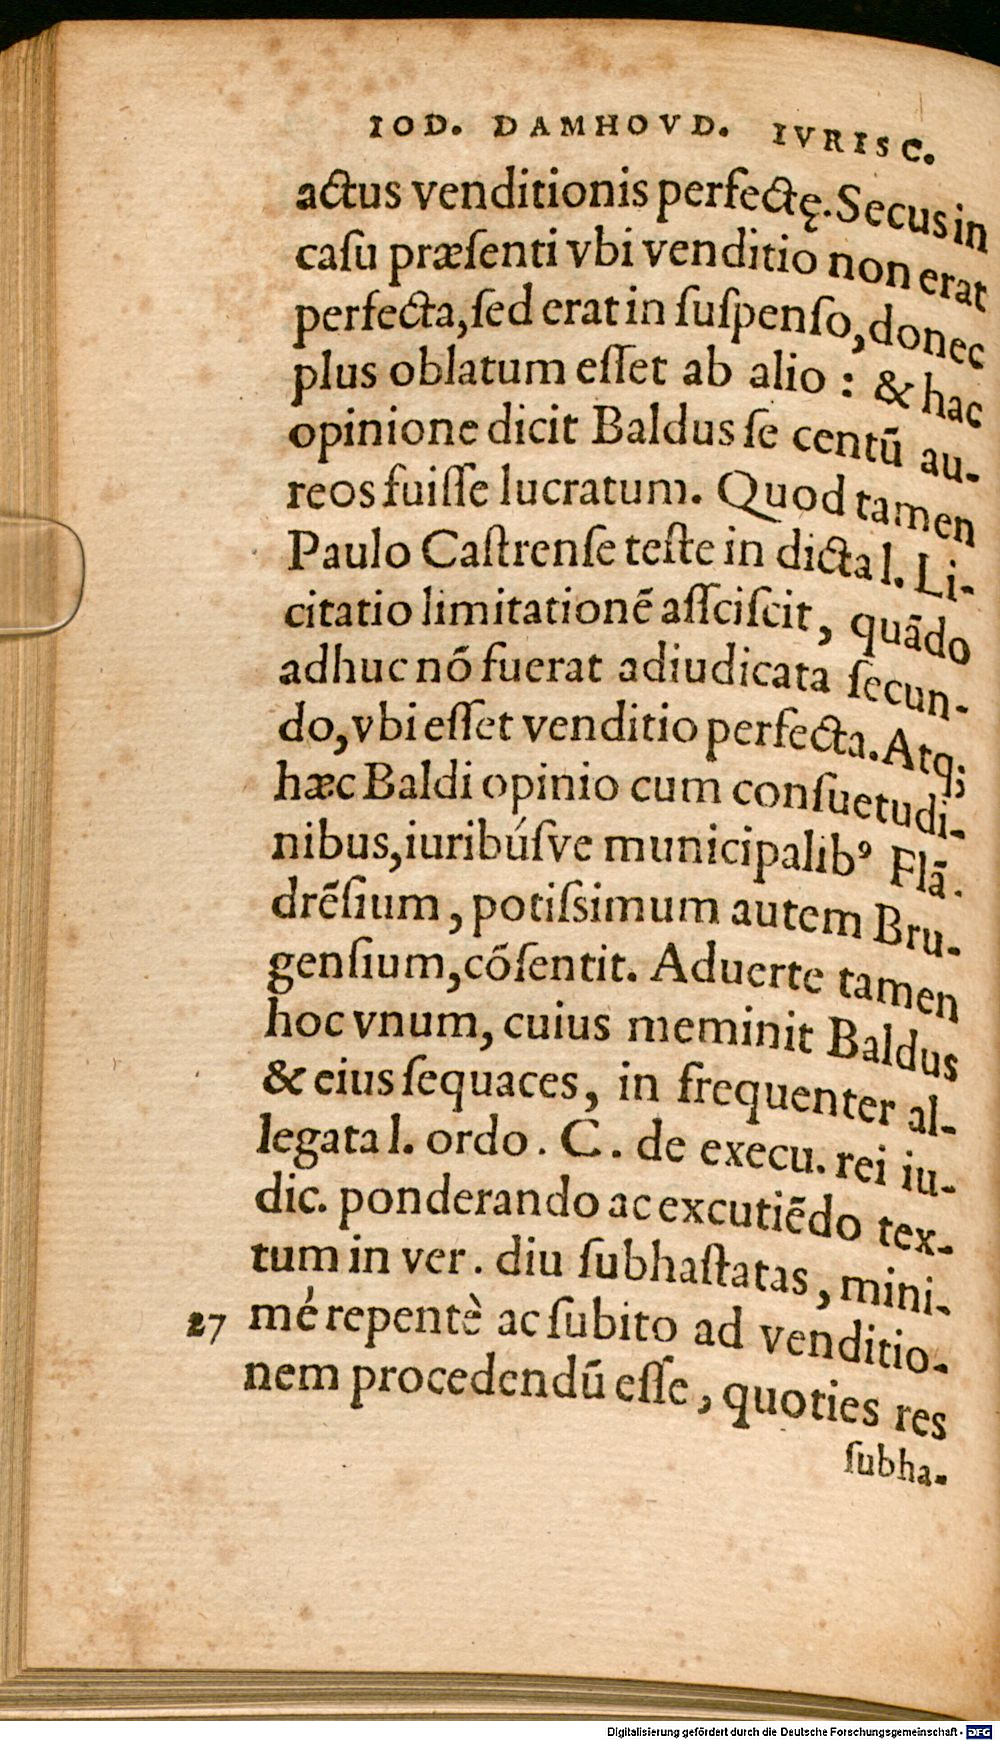 IOD. DAMHOVD. IVRISC.
actus venditionis perfectę. Secus in
caſu præſenti vbi venditio non erat
perfecta, ſed erat in ſuſpenſo, donec
plus oblatum eſſet ab alio : & hac
opinione dicit Baldus ſe centũ au-
reos fuiſſe lucratum. Quod tamen
Paulo Caſtrenſe teſte in dicta l. Li-
citatio limitationẽ aſſciſcit, quãdo
adhuc nõ fuerat adiudicata ſecun-
do, vbi eſſet venditio perfecta. Atq;
hæc Baldi opinio cum conſuetudi-
nibus, iuribúſve municipalibꝰ Flã-
drẽſium, potiſsimum autem Bru-
genſium, cõſentit. Aduerte tamen
hoc vnum, cuius meminit Baldus
& eius ſequaces, in frequenter al-
legata l. ordo. C. de execu. rei iu-
dic. ponderando ac excutiẽdo tex-
tum in ver. diu ſubhaſtatas, mini-
27 mé repentè ac ſubito ad venditio-
nem procedendũ eſſe, quoties res
ſubha-
Digitalisierung gefördert durch die Deutsche Forschungsgemeinschaft - DFG